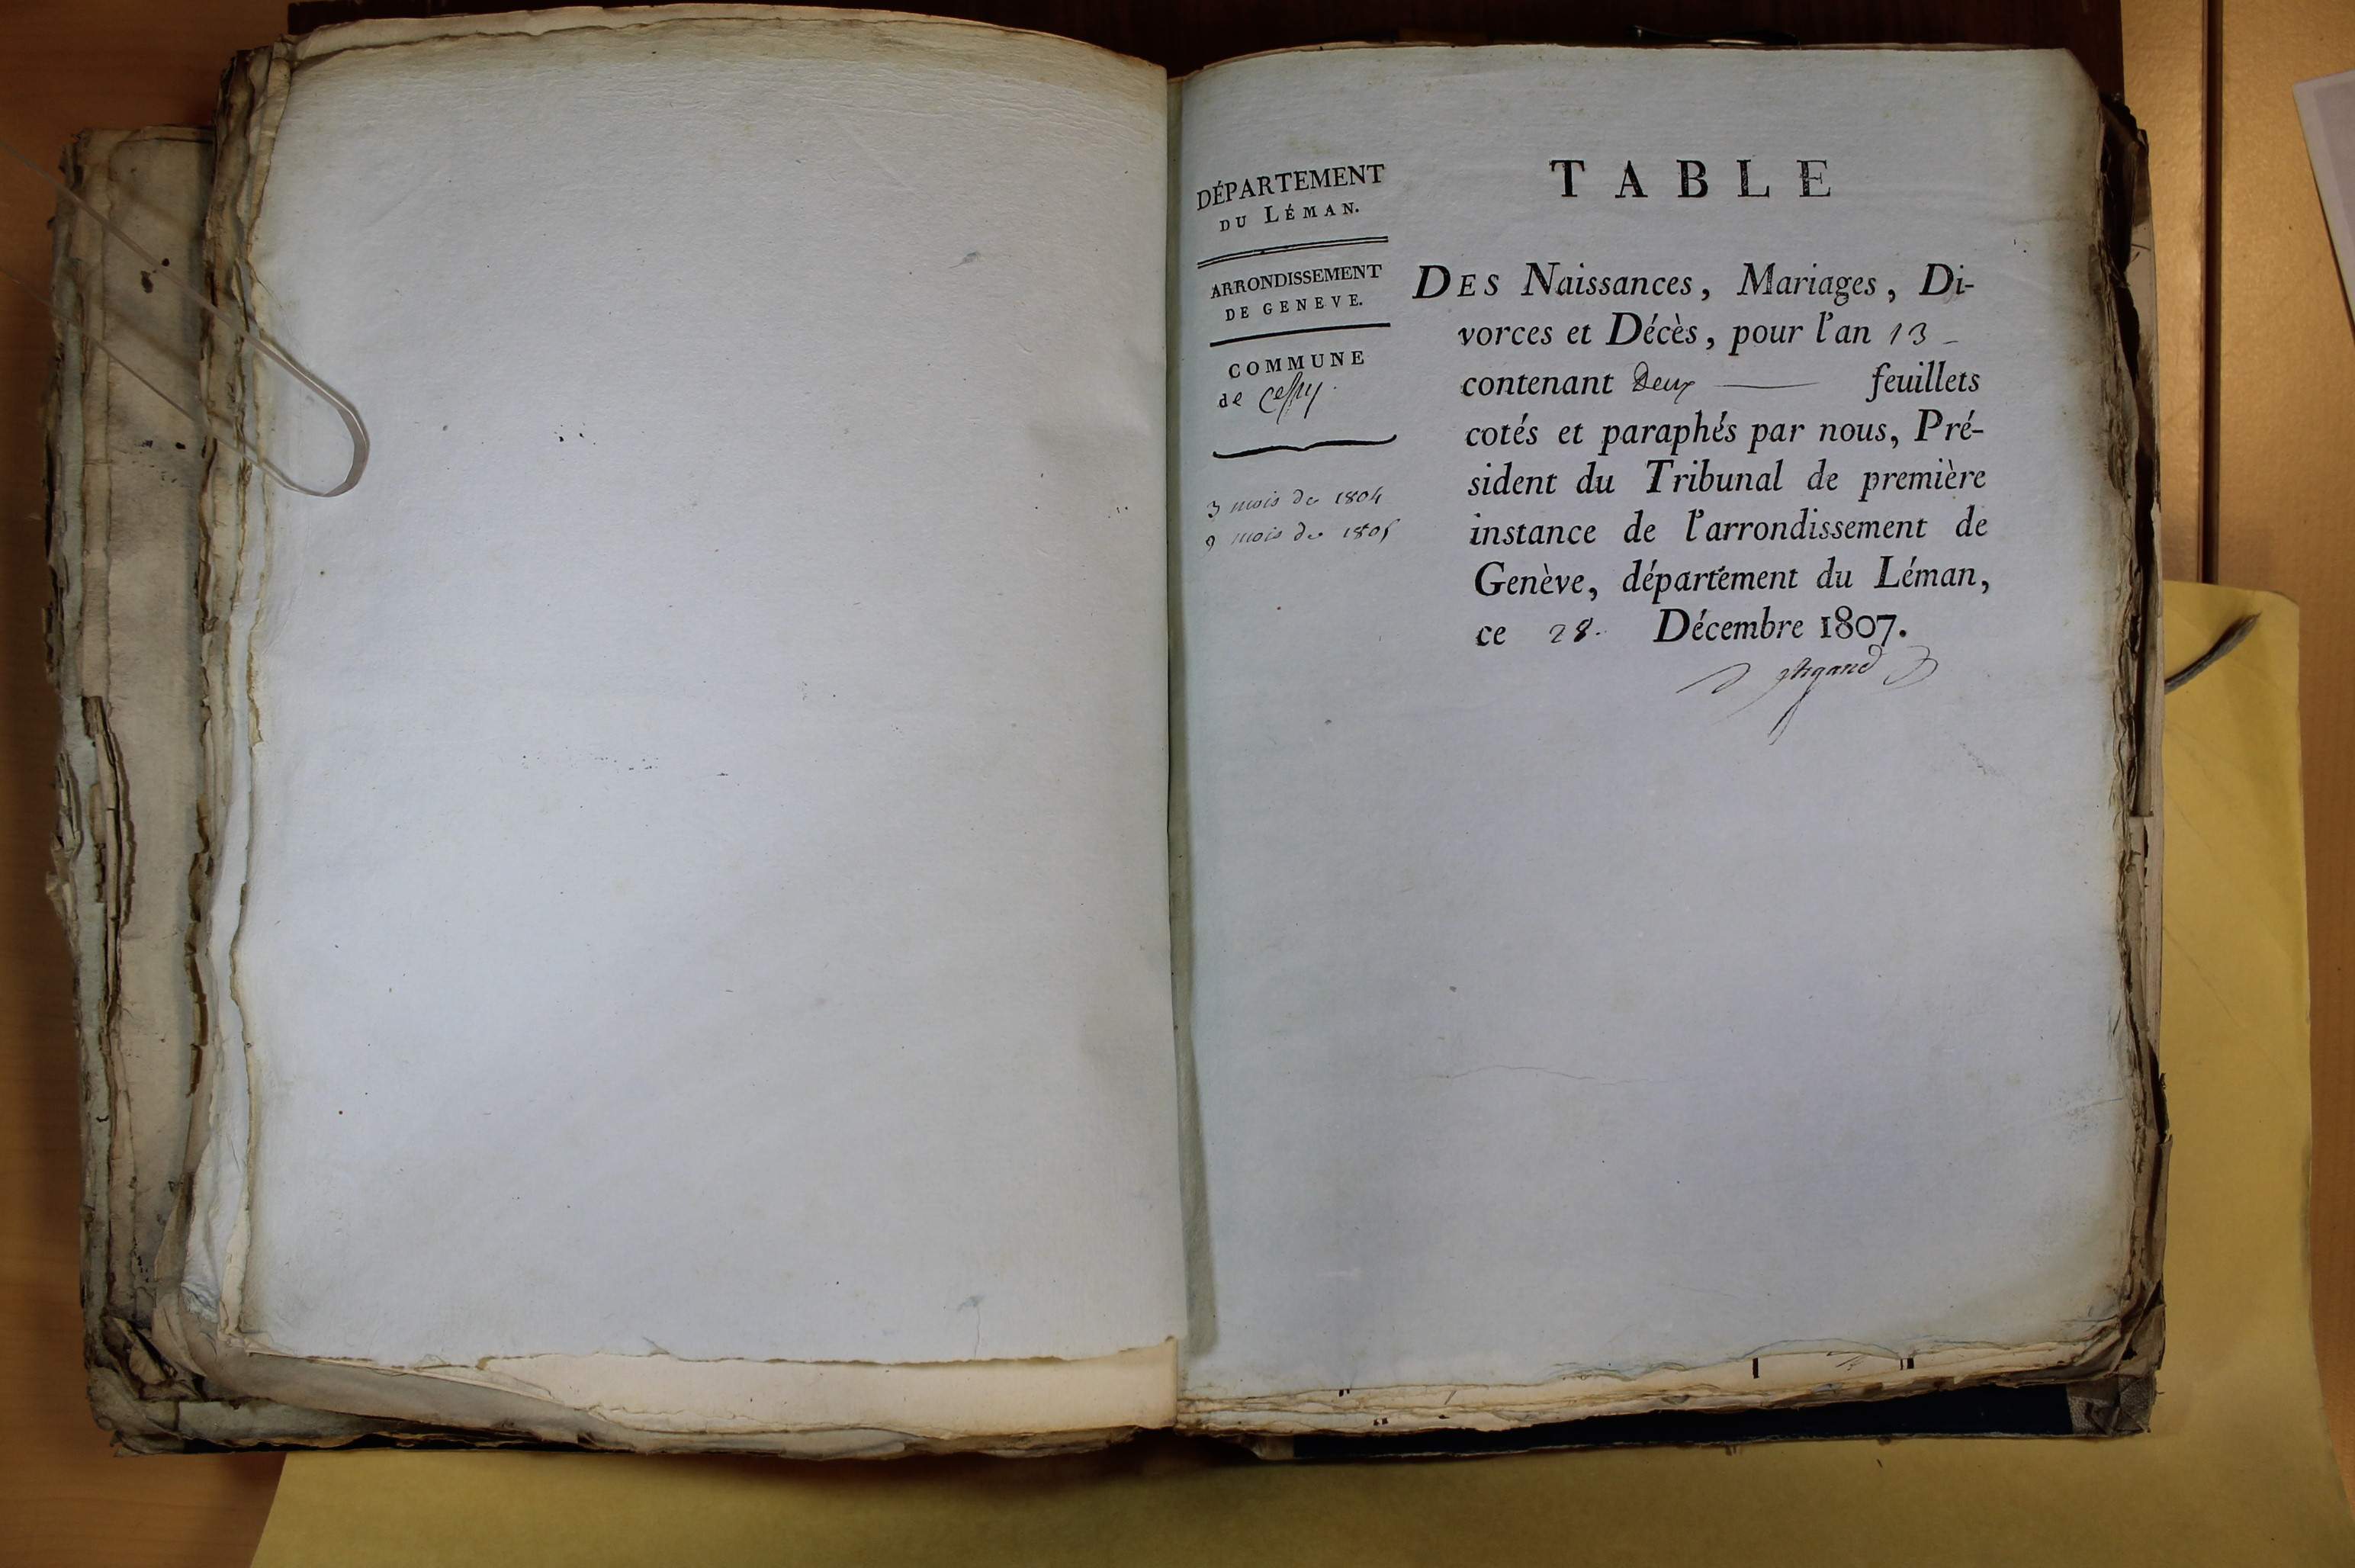 DÉPARTEMENT
DU LÉMAN.
ARRONDISSEMENT
DE GENEVE.
COMMUNE
de Cessy.
3 mois de 1804
9 mois de 1805
TABLE
DES Naissances, Mariages, Di-
vorces et Décès, pour l'an 13
contenant Deux feuillets
cotés et paraphés par nous, Pré-
sident du Tribunal de première
instance de l'arrondissement de
Genève, département du Léman,
ce 28. Décembre 1807.
Argand